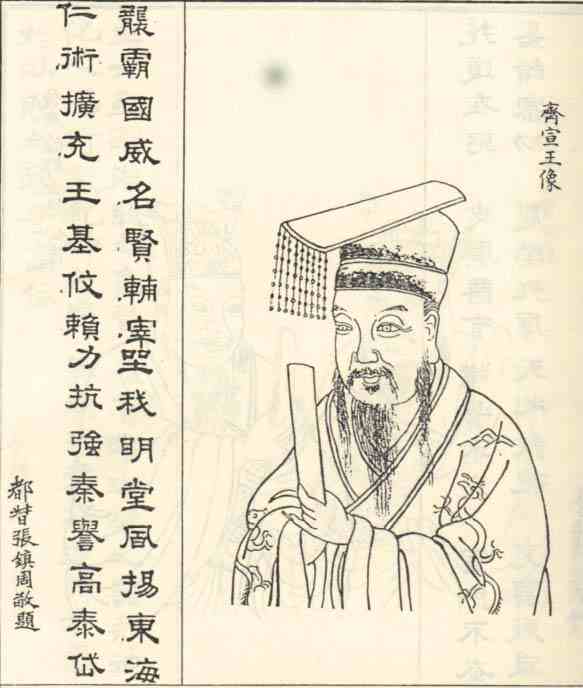 齊宣王像
襲霸國威名賢輔宰坐我明堂風揚東海
仁術擴充王基攸賴力抗強秦譽高泰岱
都督張鎮周敬題